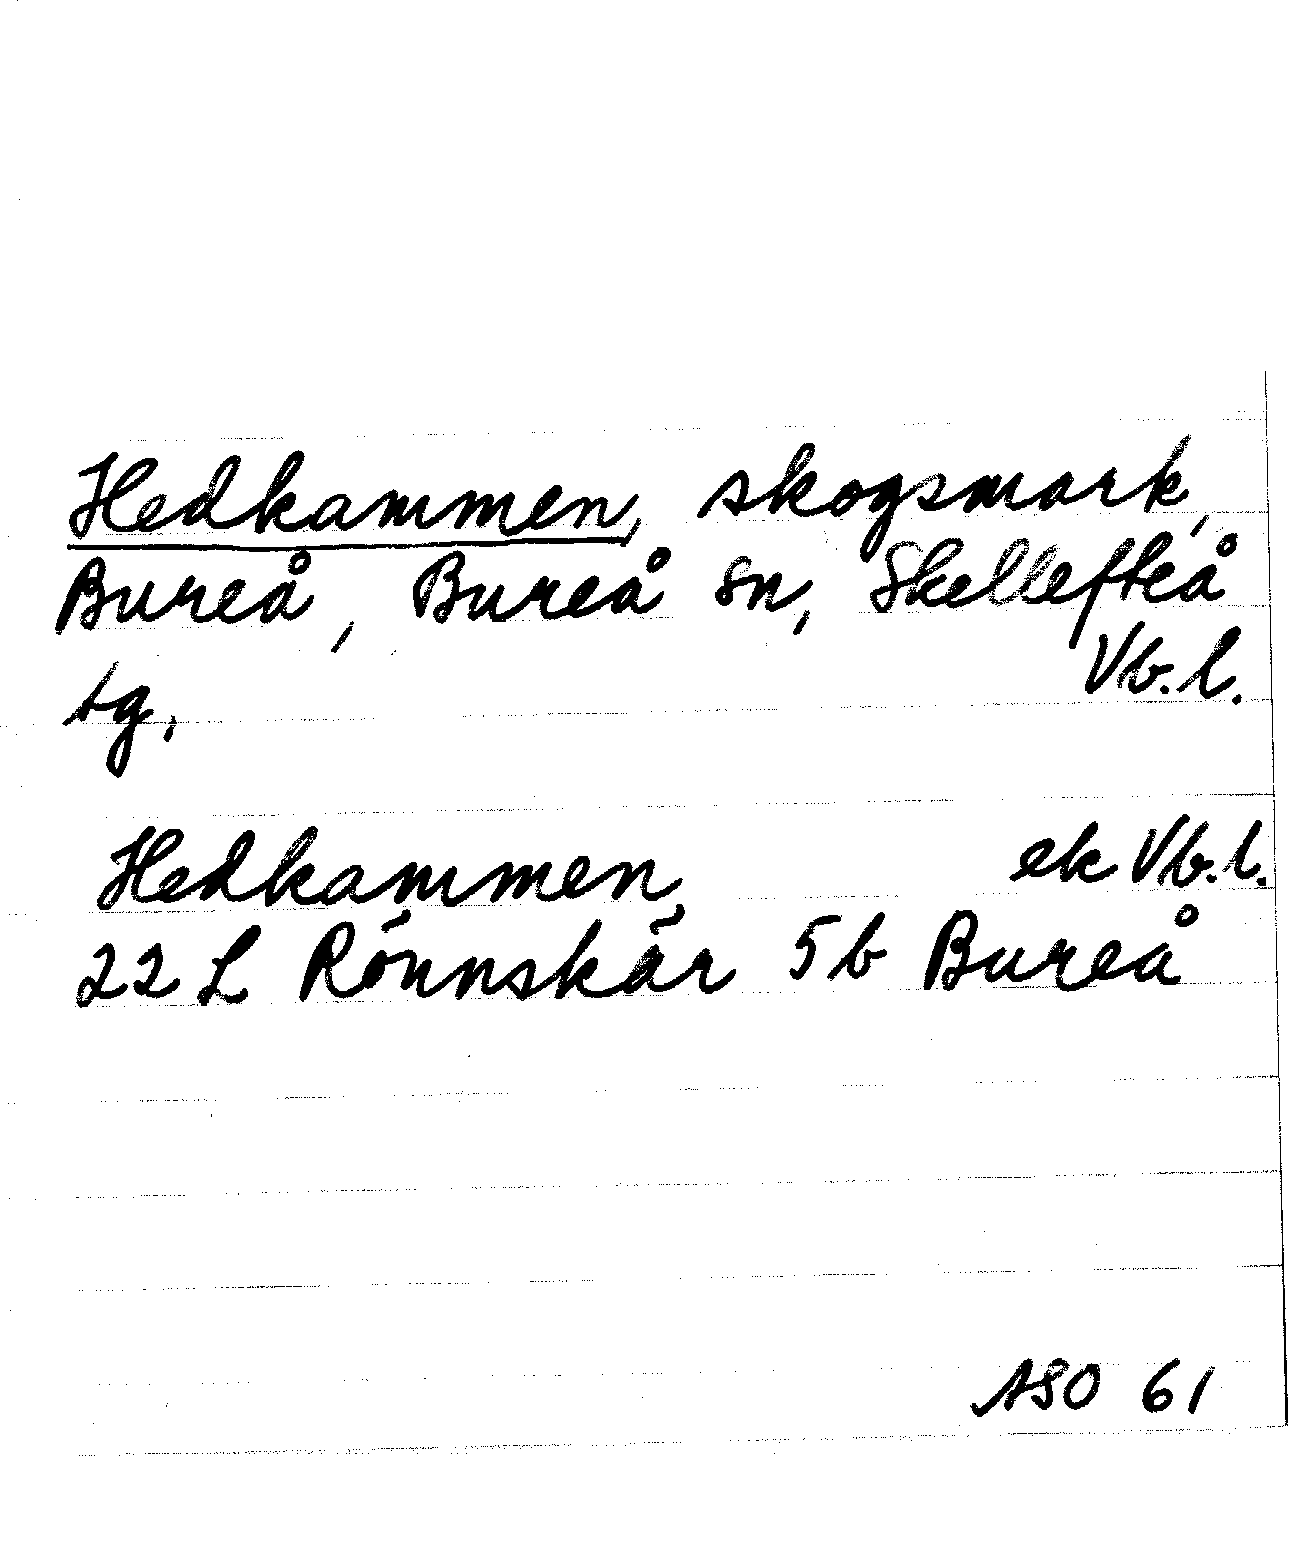 Hedkammen, skogsmark,
Bureå, Bureå sn, Skellefteå
tg, Vb.l.
Hedkammen, ek Vb.l.
22 L Rönnskär 5b Bureå
ASO 61